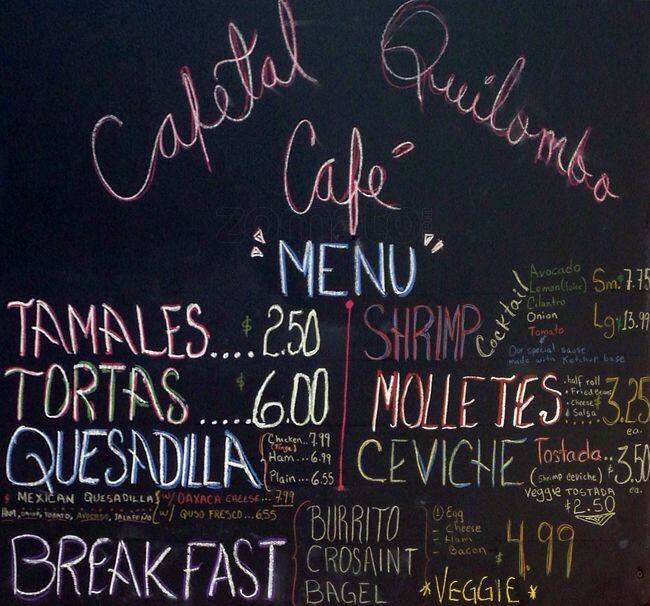 Cafetal Quilombo
Café
zomato
"MENU"
TAMALES.... $2.50
TORTAS ..... $6.00
QUESADILLA
Chicken... 7.99
(Tinga)
Ham... 6.99
Plain... 6.55
MEXICAN QUESADILLA w/ OAXACA CHEESE... 7.99
HAM, ONION, TOMATO, AVOCADO, JALAPEÑO w/ QUSO FRESCO... 6.55
SHRIMP Cocktail
Avocado
Lemon (Juice)
Cilantro
Onion
Tomato
Our special sause
made with Ketchup base
Sm. $7.75
Lg $13.99
MOLLETES
.half roll
• Fried Beans
• Cheese
& Salsa
$3.25
ea.
CEVICHE Tostada.. $3.50
(Shrimp ceviche) ea.
Veggie TOSTADA
$2.50
BREAKFAST
BURRITO
CROSAINT
BAGEL
① Egg
- Cheese
- Ham
- Bacon
$4.99
*VEGGIE*